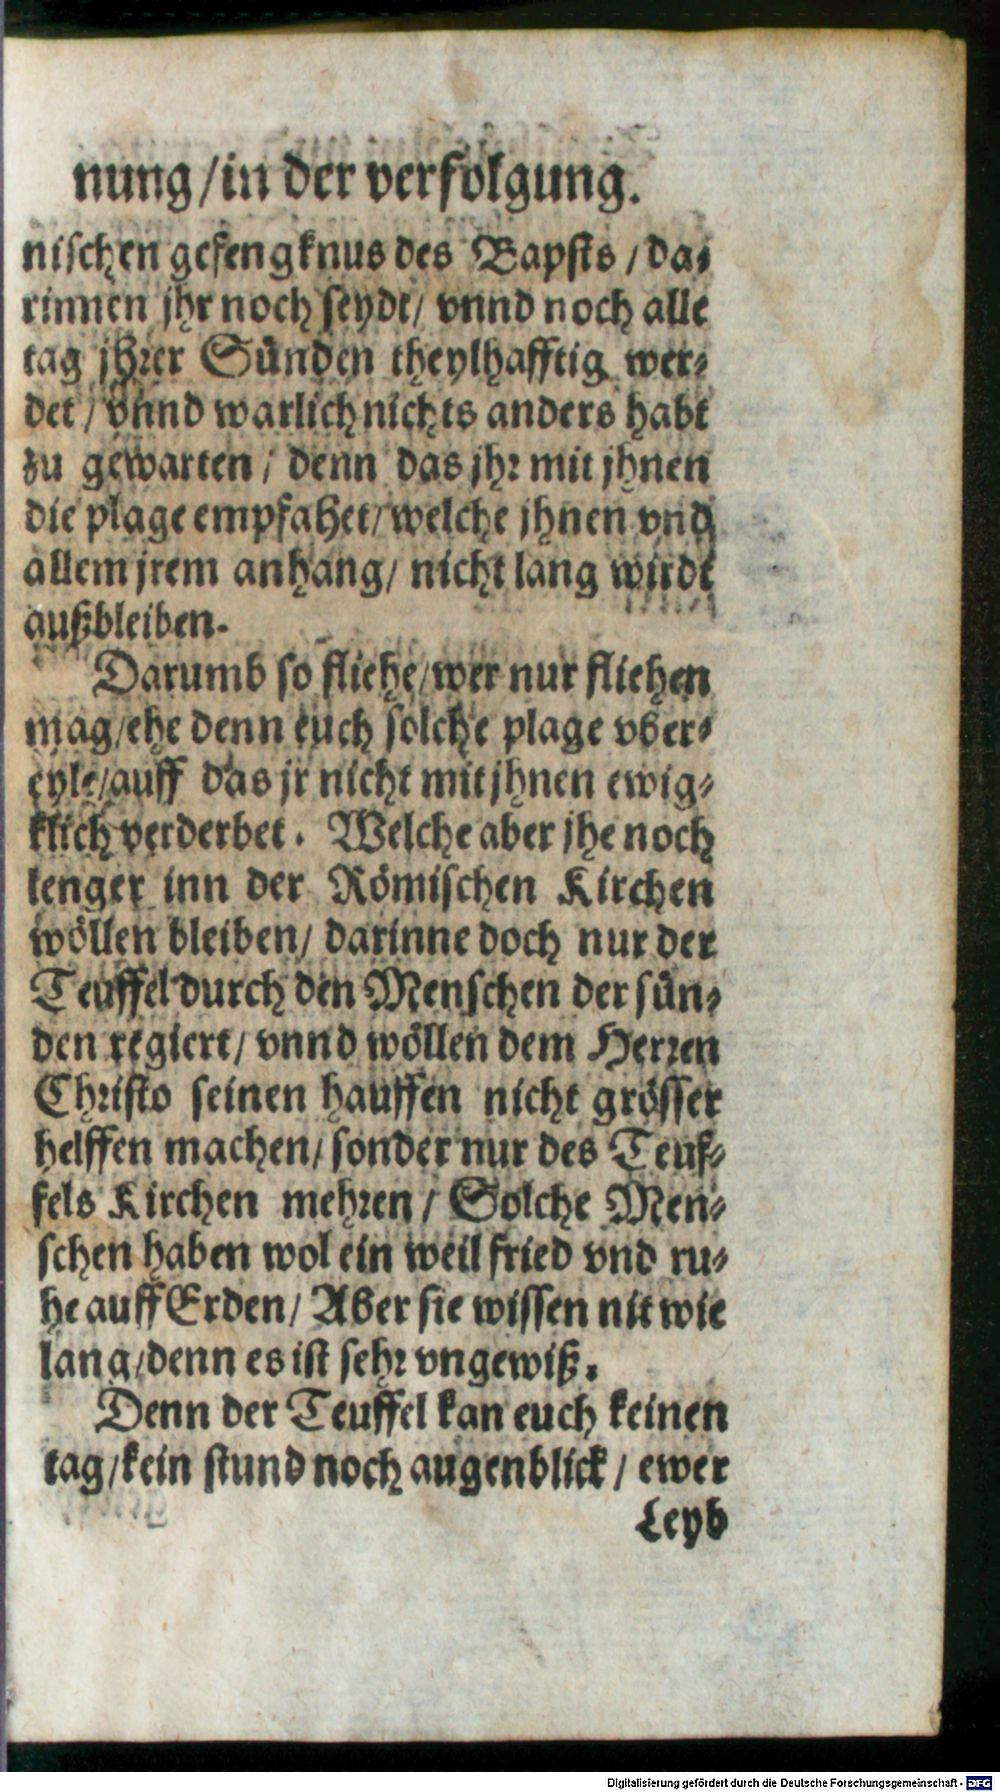 nung/in der verfolgung.
nischen gefengknus des Bapsts / da⸗
rinnen jhr noch seydt/ vnnd noch alle
tag jhrer Sünden theylhafftig wer⸗
det / vnnd warlich nichts anders habt
zu gewarten / denn das jhr mit jhnen
die plage empfahet/welche jhnen vnd
allem jrem anhang/ nicht lang wirdt
außbleiben.
Darumb so fliehe/wer nur fliehen
mag/ehe denn euch solche plage vber⸗
eyle/auff das jr nicht mit jhnen ewig⸗
klich verderbet. Welche aber jhe noch
lenger inn der Römischen Kirchen
wöllen bleiben/ darinne doch nur der
Teuffel durch den Menschen der sün⸗
den regiert/ vnnd wöllen dem Herren
Christo seinen hauffen nicht grösser
helffen machen/ sonder nur des Teuf⸗
fels Kirchen mehren / Solche Men⸗
schen haben wol ein weil fried vnd ru⸗
he auff Erden/ Aber sie wissen nit wie
lang/denn es ist sehr vngewiß.
Denn der Teuffel kan euch keinen
tag/kein stund noch augenblick / ewer
Leyb
Digitalisierung gefördert durch die Deutsche Forschungsgemeinschaft - DFG